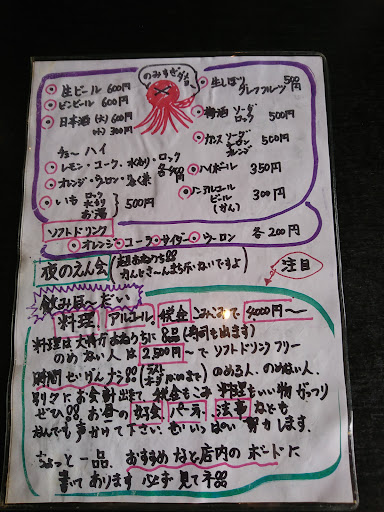 のみすぎダョ〜
生ビール 600円
ビンビール 600円
日本酒 (大) 600円
(小) 300円
チューハイ
レモン・コーク・水わり・ロック
オレンジ・ウーロン・ 各400円
いも ロック 水わり お湯 500円
生しぼり グレフルフルーツ 500円
梅酒 ソーダ ロック 500円
カシス ソーダ ウーロン オレンジ 500円
ハイボール 350円
ノンアルコールビール (かん) 300円
ソフトドリンク
オレンジ コーラ サイダー ウーロン 各200円
夜のえん会
注目
飲み放〜だい
料理 アルコール。税金 こみこみで 4,000円〜
料理は大将がおねうちに8品(寿司も出ます)
のめない人は 2,500円〜で ソフトドリンクフリー
時間せいげんナシ!!
のめる人、のめない人、
別々にお会計出来て 税金もこみ 料理もいい物がっつり
ぜひ!! お昼の 好会 パーティ 法事 なども
なんでも声かけて下さい、せいいっぱい 努力します。
ちょっと一品、おすすめなど店内のボードに
書いてあります 必ず見てネ!!